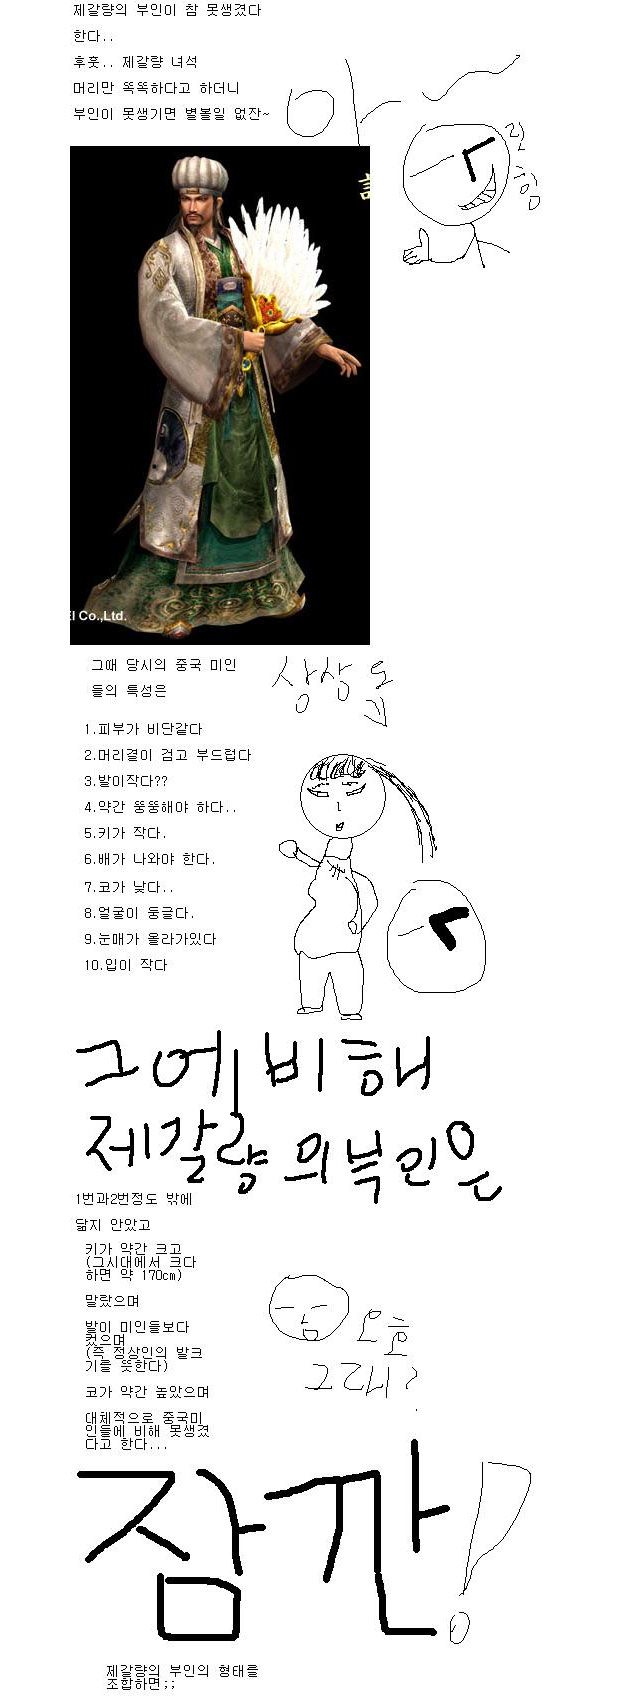 제갈량의 부인이 참 못생겼다
한다..
후훗.. 제갈량 녀석
머리만 똑똑하다고 하더니
부인이 못생기면 별볼일 없잔~
아~
흰
힘
EI Co.,Ltd.
그때 당시의 중국 미인
들의 특성은
상상도
1.피부가 비단같다
2.머리결이 검고 부드럽다
3.발이작다??
4.약간 뚱뚱해야 하다..
5.키가 작다.
6.배가 나와야 한다.
7.코가 낮다..
8.얼굴이 둥글다.
9.눈매가 올라가있다
10.입이 작다
그에 비해
제갈량의 부인은
1번과2번정도 밖에
닮지 안았고
키가 약간 크고
(그시대에서 크다
하면 약 170cm)
말랐으며
발이 미인들보다
컸으며
(즉 정상인의 발크
기를 뜻한다)
코가 약간 높았으며
대체적으로 중국미
인들에 비해 못생겼
다고 한다...
오호
그래니?
잠깐!
제갈량의 부인의 형태를
조합하면;;